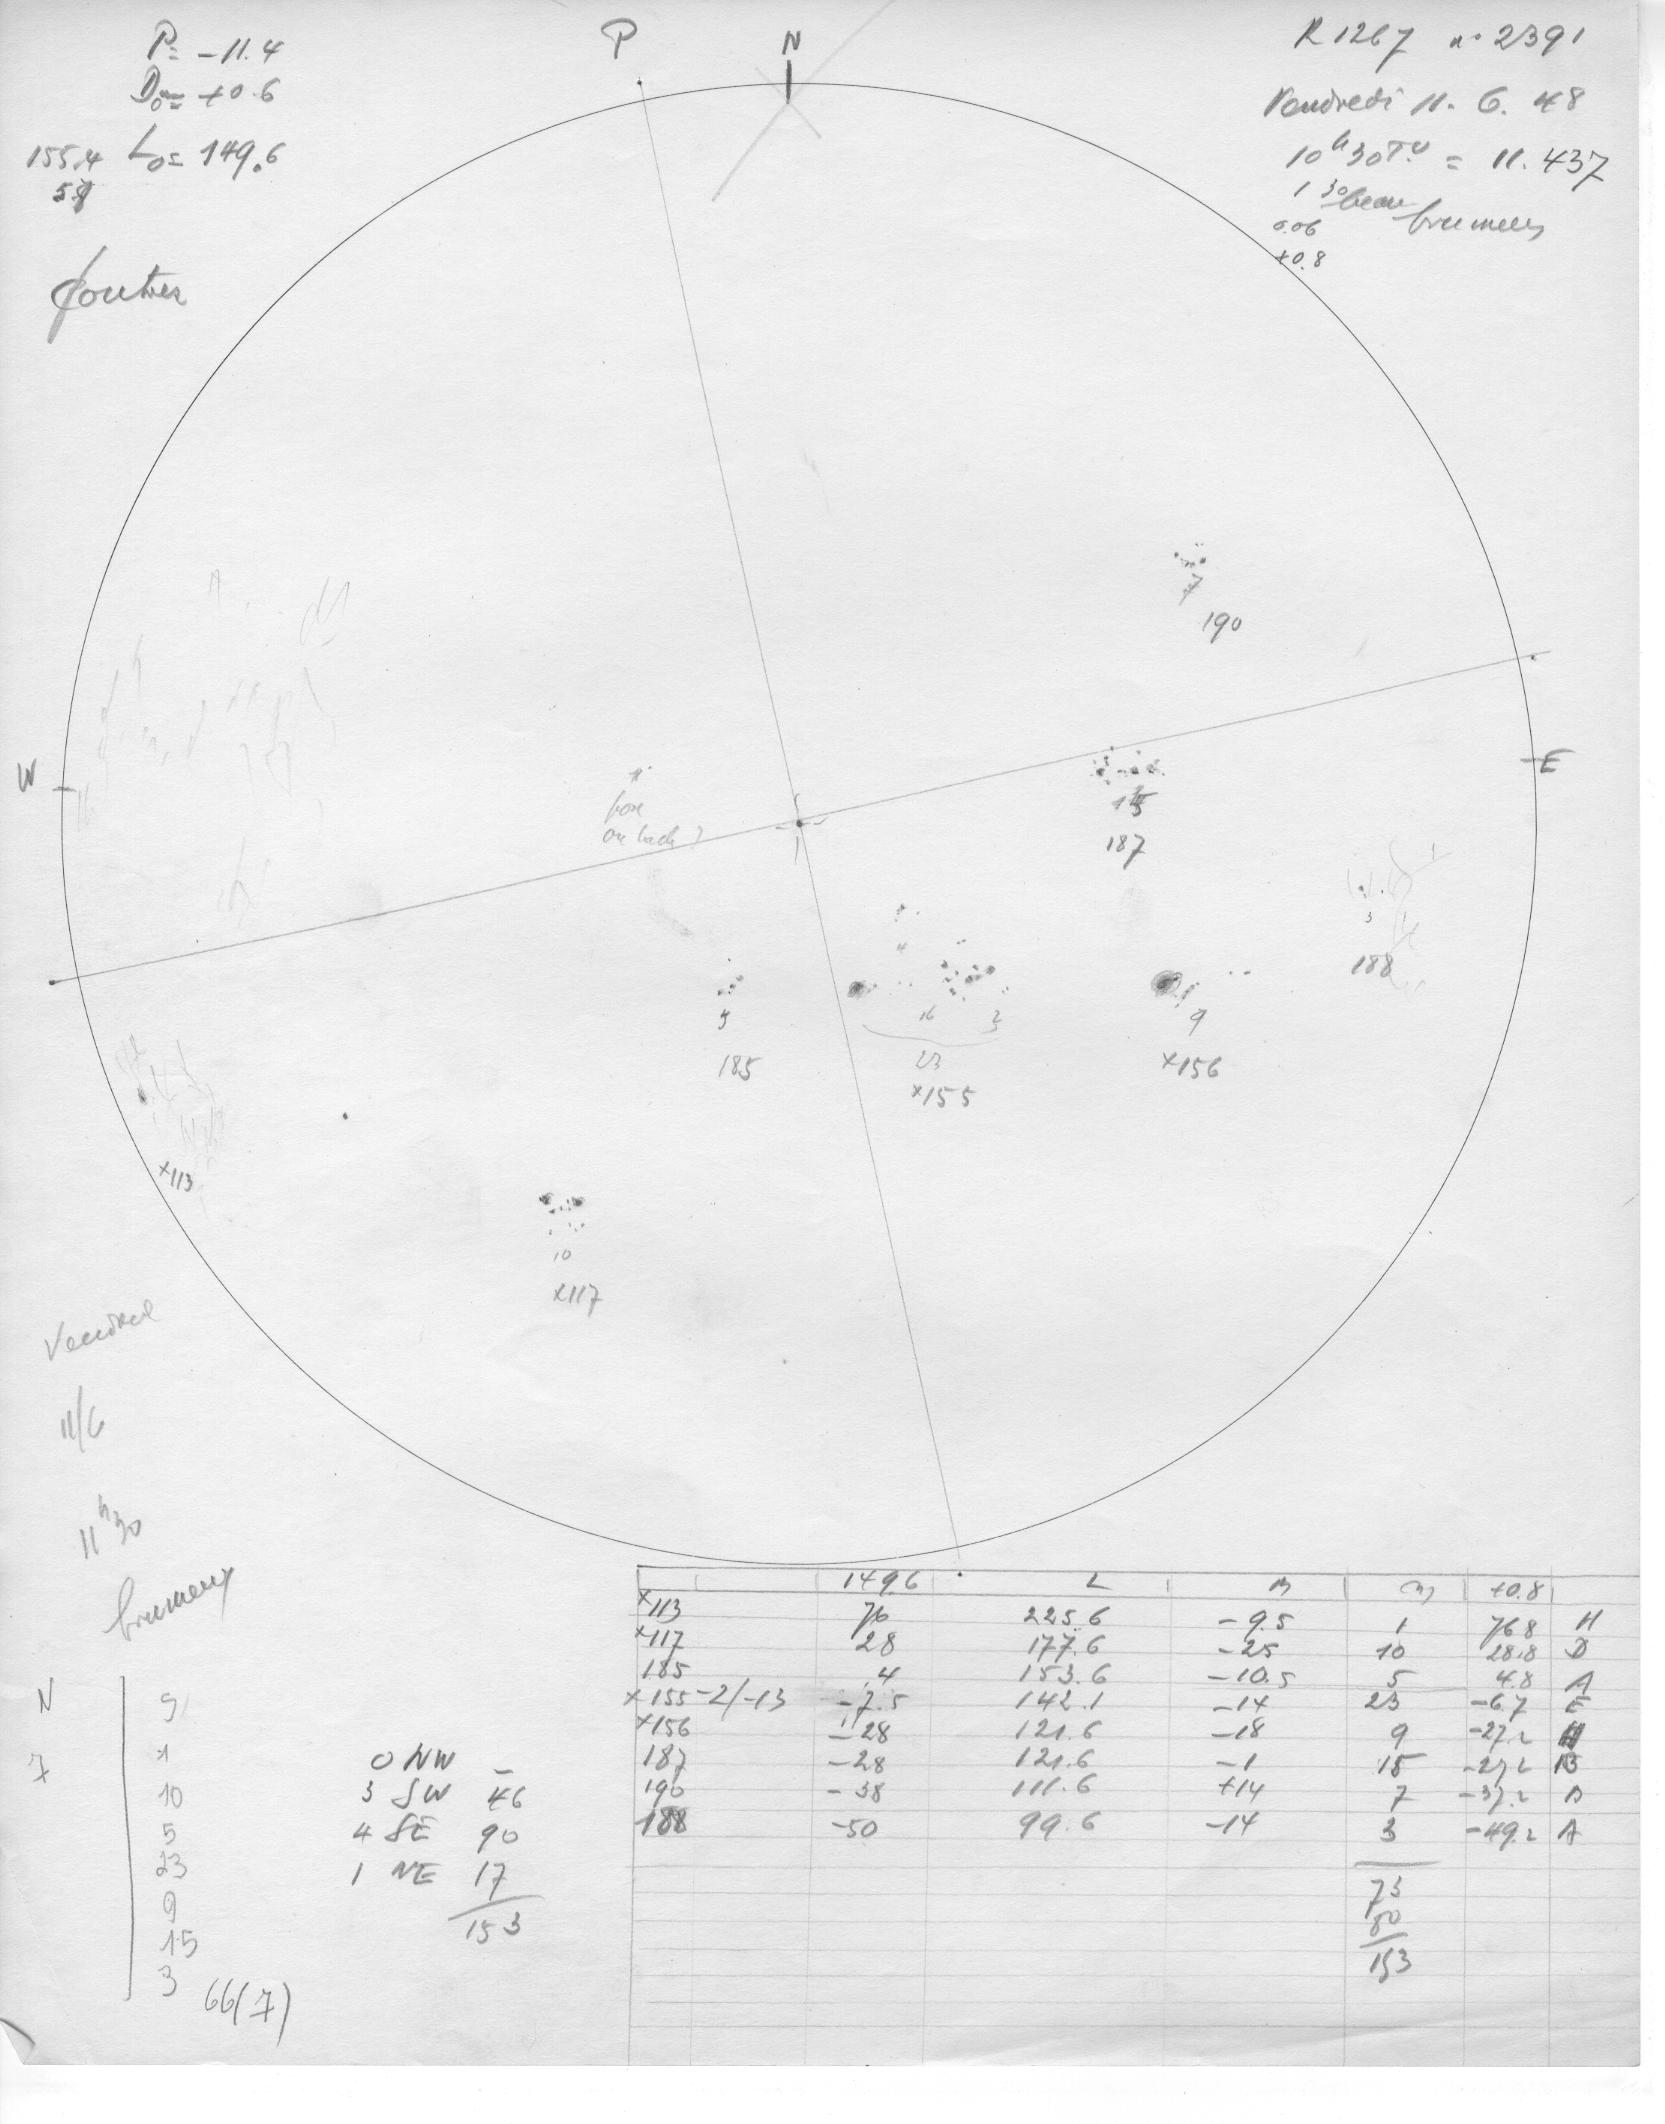 P= -11.4
D₀= +0.6
155.4 L₀= 149.6
P
N
R 1267 n° 2391
Vendredi 11. 6. 48
10ʰ30 T.U = 11.437
1 30 beau brumeux
0.06
+0.8
7
190
W
E
15
187
4
3
188
5
185
16
23
×155
9
×156
×113
10
×117
11/6
11ʰ30
brumeux
149.6 L B +0.8
×113 76 225.6 -9.5 1 76.8 H
×117 28 177.6 -25 10 28.8 D
185 4 153.6 -10.5 5 4.8 A
×155 -2/-13 -7.5 142.1 -14 23 -6.7 E
×156 -28 121.6 -18 9 -27.2 H
187 -28 121.6 -1 15 -27.2 B
190 -38 111.6 +14 7 -37.2 D
188 -50 99.6 -14 3 -49.2 A
73
80
153
N S
7 1
10
5
23
9
15
3
66(7)
0 NW -
3 SW 46
4 SE 90
1 NE 17
153